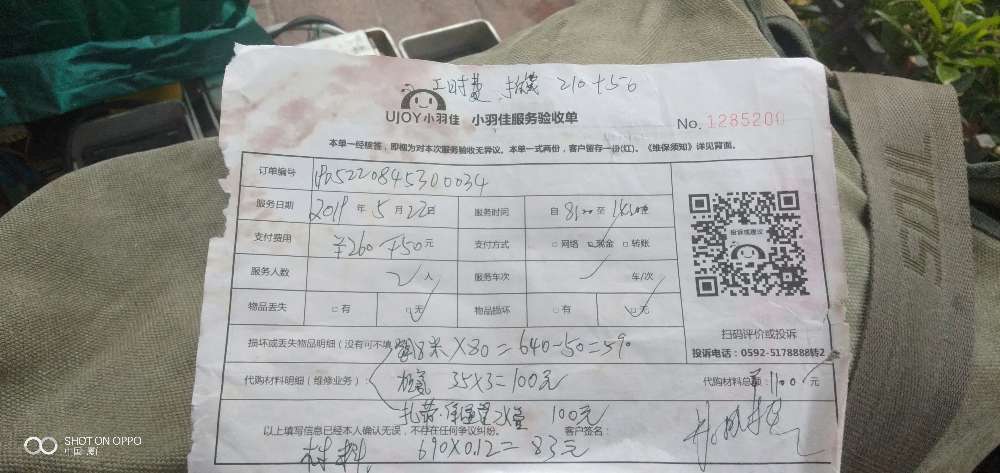 工时费 210+50
UJOY小羽佳 小羽佳服务验收单
No. 1285200
本单一经核答，即视为对本次服务验收无异议。本单一式两份，客户留存一份(红)。《维保须知》详见背面。
订单编号 05220845300034
服务日期 2019年5月22日 服务时间 自8:00至
支付费用 ￥260 +50元 支付方式 □网络 □现金 □转账
服务人数 2人 服务车次 车/次
物品丢失 □有 □无 物品损坏 □有 □无
投诉或建议
扫码评价或投诉
投诉电话：0592-5178888转2
损坏或丢失物品明细（没有可不填 8米×80=640-50=590
代购材料明细（维修业务） 35×3=100元 代购材料总额：1100元
100元
以上填写信息已经本人确认无误，不存在任何争议纠纷。 客户签名：
材料 690×0.12=83元
SHOT ON OPPO
中国·厦门